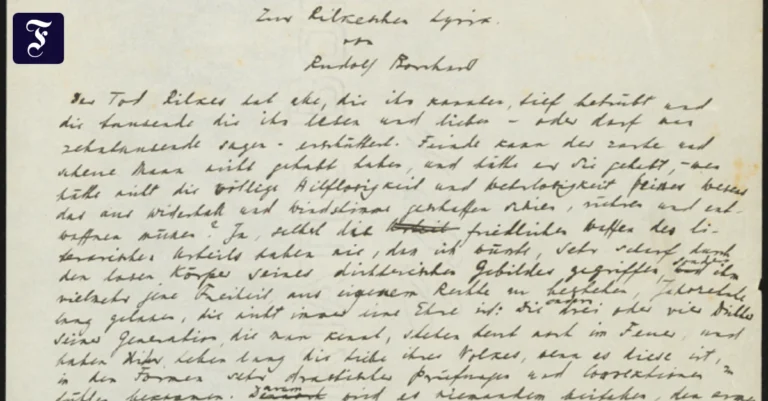 F
Zur Rilkeschen Lyrik.
von
Rudolf Borchardt
Der Tod Rilkes hat alle, die ihn kannten, tief betrübt und
die tausende die ihn lesen und lieben – oder darf man
zehntausende sagen – erschüttert. Feinde kann der zarte und
scheue Mann nicht gehabt haben, und hätte er sie gehabt, – wen
hätte nicht die völlige Hilflosigkeit und Wehrlosigkeit seines Wesens
das aus Widerhall und Windstimme geschaffen schien, rühren und ent-
waffnen müssen? Ja, selbst die friedlichen Waffen des li-
terarischen Urteils haben nie, dass ich wüsste, sehr scharf durch
den losen Körper seines dichterischen Gebildes gegriffen, ihn
vielmehr jene Freiheit aus eigenem Rechte zu Jahrzehnte
lang gelassen, die nicht immer eine Ehre ist: Die andern drei oder vier Dichter
seiner Generation, die man kennt, stehen heut noch im Feuer, und
haben Leben lang die Liebe ihres Volkes, wenn es diese ist,
in den Formen sehr drastischer Prüfungen und Correktionen zu
bekommen. Darum wird es niemandem den